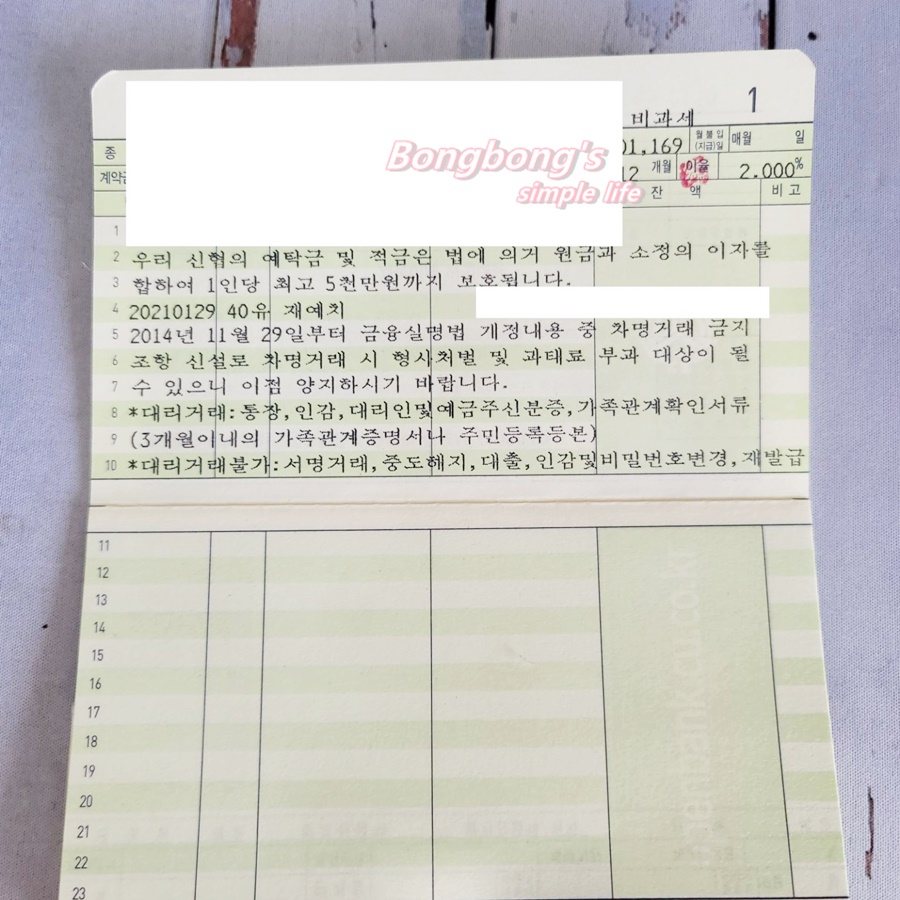 1
비과세
종 01,169 월불입(지급)일 매월 일
계약금 12 개월 이율 2.000%
잔 액 비고
Bongbong's
simple life
1
2 우리 신협의 예탁금 및 적금은 법에 의거 원금과 소정의 이자를
3 합하여 1인당 최고 5천만원까지 보호됩니다.
4 20210129 40유 재예치
5 2014년 11월 29일부터 금융실명법 개정내용 중 차명거래 금지
6 조항 신설로 차명거래 시 형사처벌 및 과태료 부과 대상이 될
7 수 있으니 이점 양지하시기 바랍니다.
8 *대리거래:통장,인감,대리인및예금주신분증,가족관계확인서류
9 (3개월이내의 가족관계증명서나 주민등록등본)
10 *대리거래불가:서명거래,중도해지,대출,인감및비밀번호변경,재발급
11
12
13
14
15
16
17
18
19
20
21
22
23